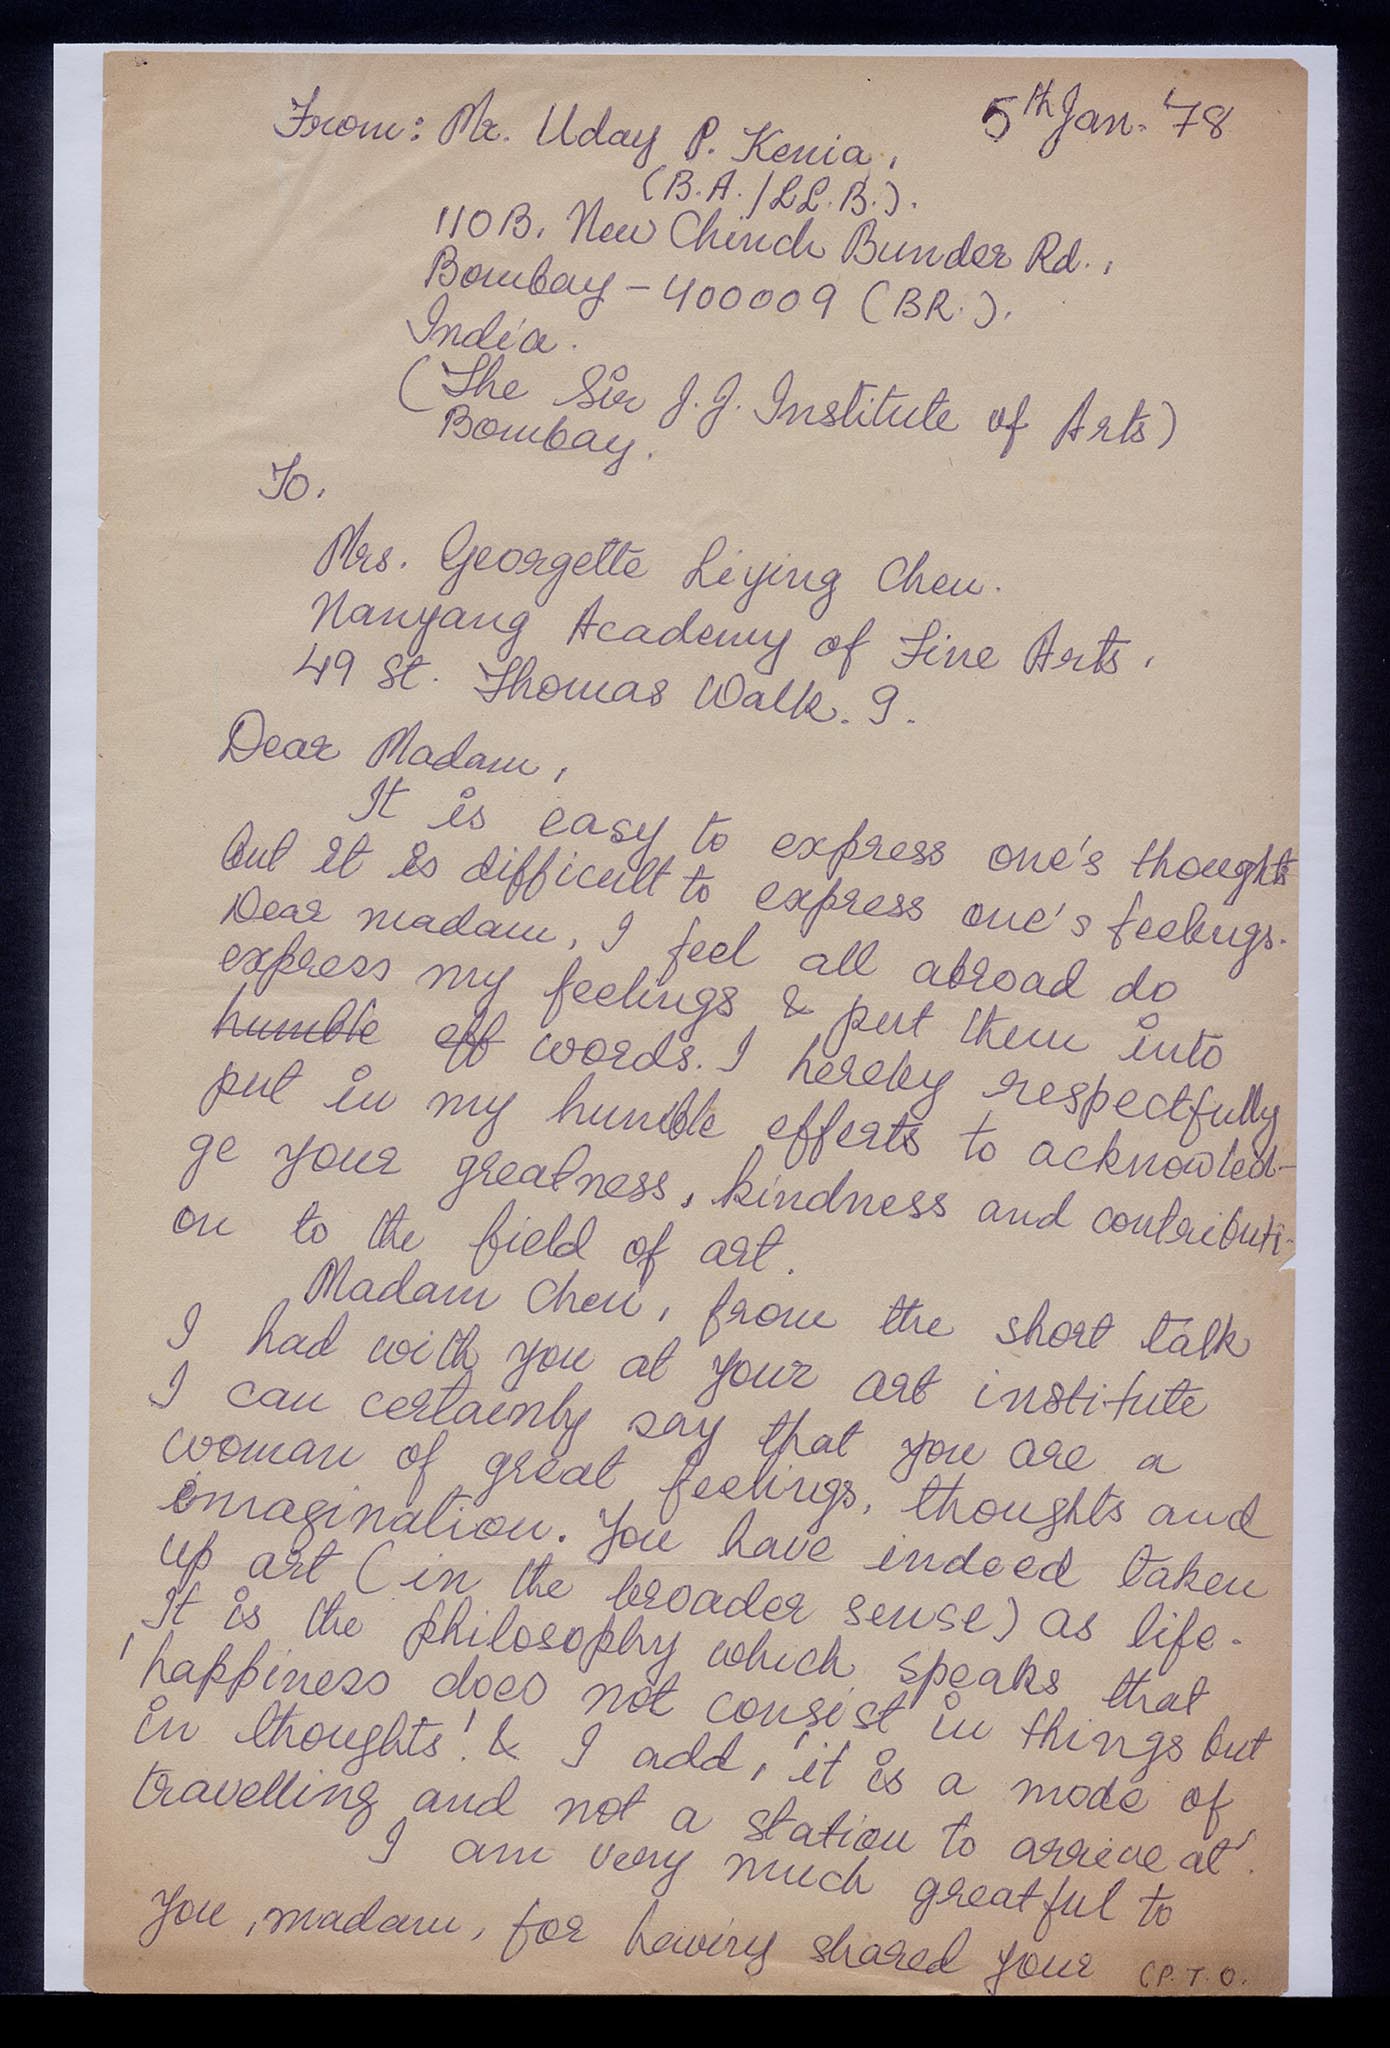 5th Jan. '78
From: Mr. Uday P. Kenia,
(B.A./LL.B.).
110B, New Chinch Bunder Rd.,
Bombay - 400009 (BR.).
India.
(The Sir J.J. Institute of Arts)
Bombay.
To,
Mrs. Georgette Liying Chen.
Nanyang Academy of Fine Arts,
49 St. Thomas Walk. 9.
Dear Madam,
It is easy to express one's thoughts
but it is difficult to express one's feelings.
Dear madam, I feel all abroad do
express my feelings & put them into
humble eff words. I hereby respectfully
put in my humble efferts to acknowled-
ge your greatness, kindness and contributi-
on to the field of art.
Madam Chen, from the short talk
I had with you at your art institute
I can certainly say that you are a
woman of great feelings, thoughts and
imagination. You have indeed taken
up art (in the broader sense) as life.
It is the philosophy which speaks that
'happiness does not consist in things but
in thoughts'. & I add, 'it is a mode of
travelling and not a station to arrive at'.
I am very much greatful to
you, madam, for having shared your
(P.T.O.